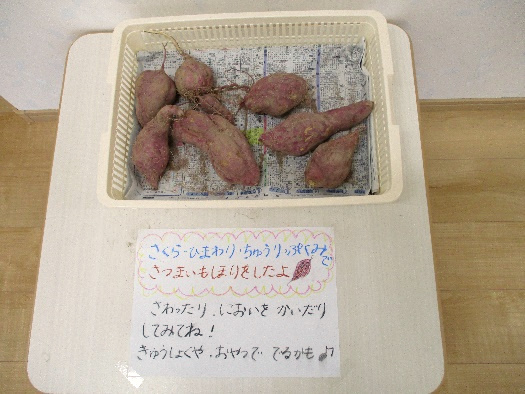 さくら・ひまわり・ちゅうりっぷぐみで
さつまいもほりをしたよ
さわったり、においを かいだり
してみてね！
きゅうしょくや、おやつで でるかも♪